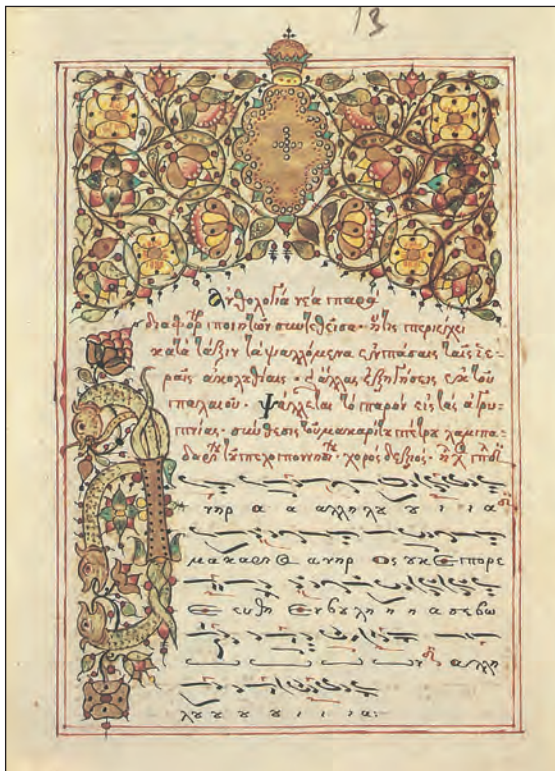 13
Ἀνθολογία νέα παρὰ
διαφόρ ποιητῶν συντεθεῖσα· ἥτις περιέχει
κατὰ τάξιν τὰ ψαλλόμενα ἐν πάσαις ταῖς ἱε-
ραῖς ἀκολȣθίαις· ἐξηγήσεις ἐκ τοῦ
παλαιοῦ· Ψάλλεται τὸ παρὸν εἰς τὰς ἀγρυ-
πνίας· σύνθεσις τοῦ μακαρίτ πέτρȣ λαμπα-
δαρ τȣ πελοποννησί· χορὸς δεξιός· ἦχ
νηρ α α αλληλȣ ȣ ι ι α
μακαρι ανηρ ος ȣκ επορε
ε ευθη εν βȣλη η η ασεβω
αλλη
λȣ ȣ ȣ ȣ ι ι ι α: